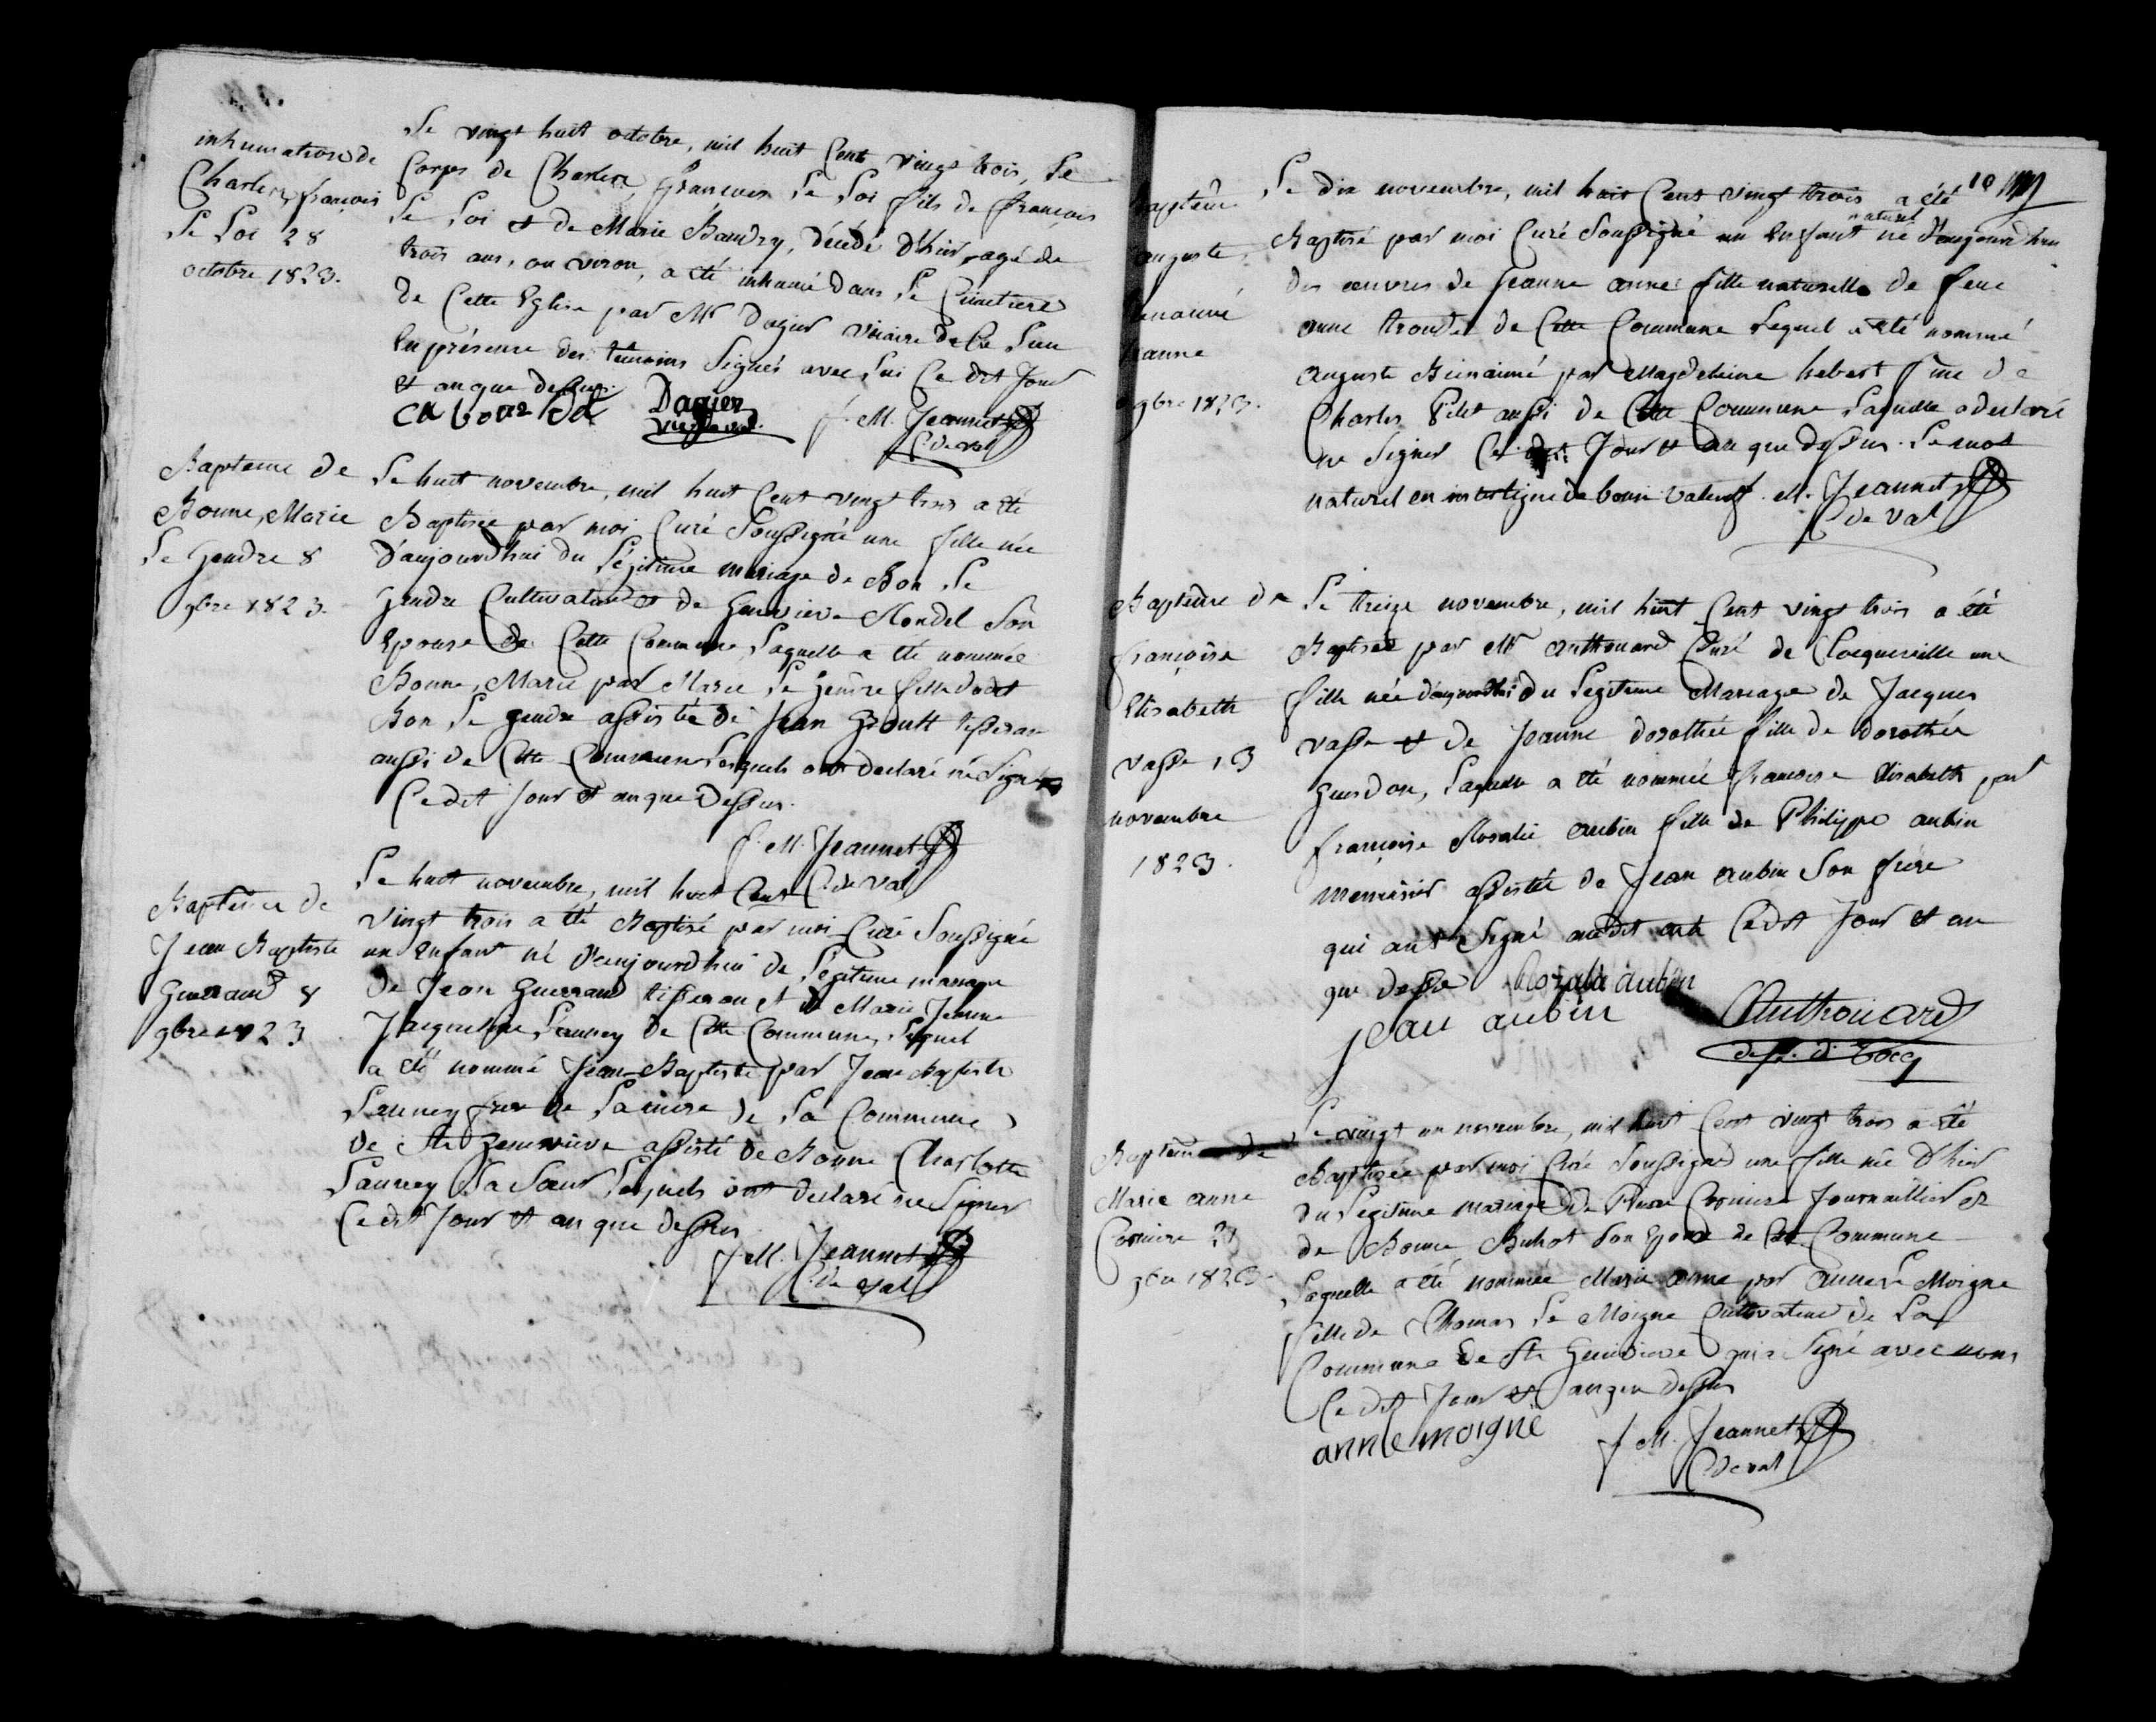 inhumation de
Charles, françois
Le Loi 28
octobre 1823.
Le vingt huit octobre, mil huit Cent vingt trois, Le
Corps de Charles françois Le Loi fils de françois
Le Loi et de Marie Baudry, décédé d'hier, agé de
trois ans, ou viron, a été inhumé dans Le Cimetiere
de Cette Eglise par Mr Dagier vicaire de Ce Lieu
En présence des témoins Signés avec Lui Ce dit Jour
et an que dessus.
Dagier
f. M. Jeannet
C. de Val
Bapteme de
Bonne, Marie
Le Gendre 8
9bre 1823.
Le huit novembre, mil huit Cent vingt trois a été
Baptisée par moi Curé Soussigné une fille née
d'aujourd'hui du Légitime mariage de Bon Le
Gendre Cultivateur et de Genevieve Blondel Son
Epouse de Cette Commune, Laquelle a été nommée
Bonne, Marie par Marie Le Gendre fille dudit
Bon Le Gendre assistée de Jean Groult tisseran
aussi de Cette Commune Lesquels ont declaré ne Signer
Ce dit Jour et an que Dessus.
f. M. Jeannet
C. de Val
Bapteme de
Jean Baptiste
Guerrand 8
9bre 1823
Le huit novembre, mil huit Cent
vingt trois a été Baptisé par moi Curé Soussigné
un Enfant né d'aujourd'hui de Légitime mariage
de Jean Guerrand tisseran et de Marie Jeanne
Jacqueline Launey de Cette Commune, Lequel
a été nommé Jean-Baptiste par Jean Baptiste
Launey frere de La mere de La Commune
de Ste Genevieve assisté de Bonne Charlotte
Launey Sa Sœur Lesquels ont declaré ne Signer
Ce dit Jour et an que dessus
f. M. Jeannet
C. de Val
10
Bapteme
auguste
Bienaimé
Jeanne
9bre 1823.
Le dix novembre, mil huit Cent vingt trois a été
Baptisé par moi Curé Soussigné un Enfant naturel né d'aujourd'hui
des œuvres de Jeanne anne fille naturelle de feue
anne de Cette Commune Lequel a été nommé
Auguste Bienaimé par Magdeleine hebert fme de
Charles Petit aussi de Cette Commune Laquelle a declaré
ne Signer Ce dit Jour et an que dessus. Le mot
naturel en interligne de bonne valeur f. M. Jeannet
C de Val
Bapteme de
françoise
Elisabeth
vasse 13
novembre
1823.
Le treize novembre, mil huit Cent vingt trois a été
Baptisée par Mr Anthouard Curé de Clocqueville une
fille née d'aujourd'hui du Legitime Mariage de Jacques
vasse et de Jeanne dorothée fille de dorothée
Guesdon, Laquelle a été nommée françoise Elisabeth par
françoise Rosalie aubin fille de Philippe aubin
menuisier assistée de Jean aubin Son frere
qui ont Signé audit acte Cedit Jour et an
que dessus Rozalie aubin
jean aubin Anthouard
Bapteme de
Marie anne
Cornier 21
9bre 1823.
Le vingt un novembre, mil huit Cent vingt trois a été
Baptisée par moi Curé Soussigné une fille née d'hier
du Legitime mariage de Pierre Cornier Journaillier et
de Bonne Buhot Son Epouse de Cette Commune
Laquelle a été nommée Marie anne par Anne Le Moigne
fille de Thomas Le Moigne Cultivateur de La
Commune de Ste Genevieve qui a Signé avec nous
Ce dit Jour et an que dessus
ann lemoigne f. M. Jeannet
C de val